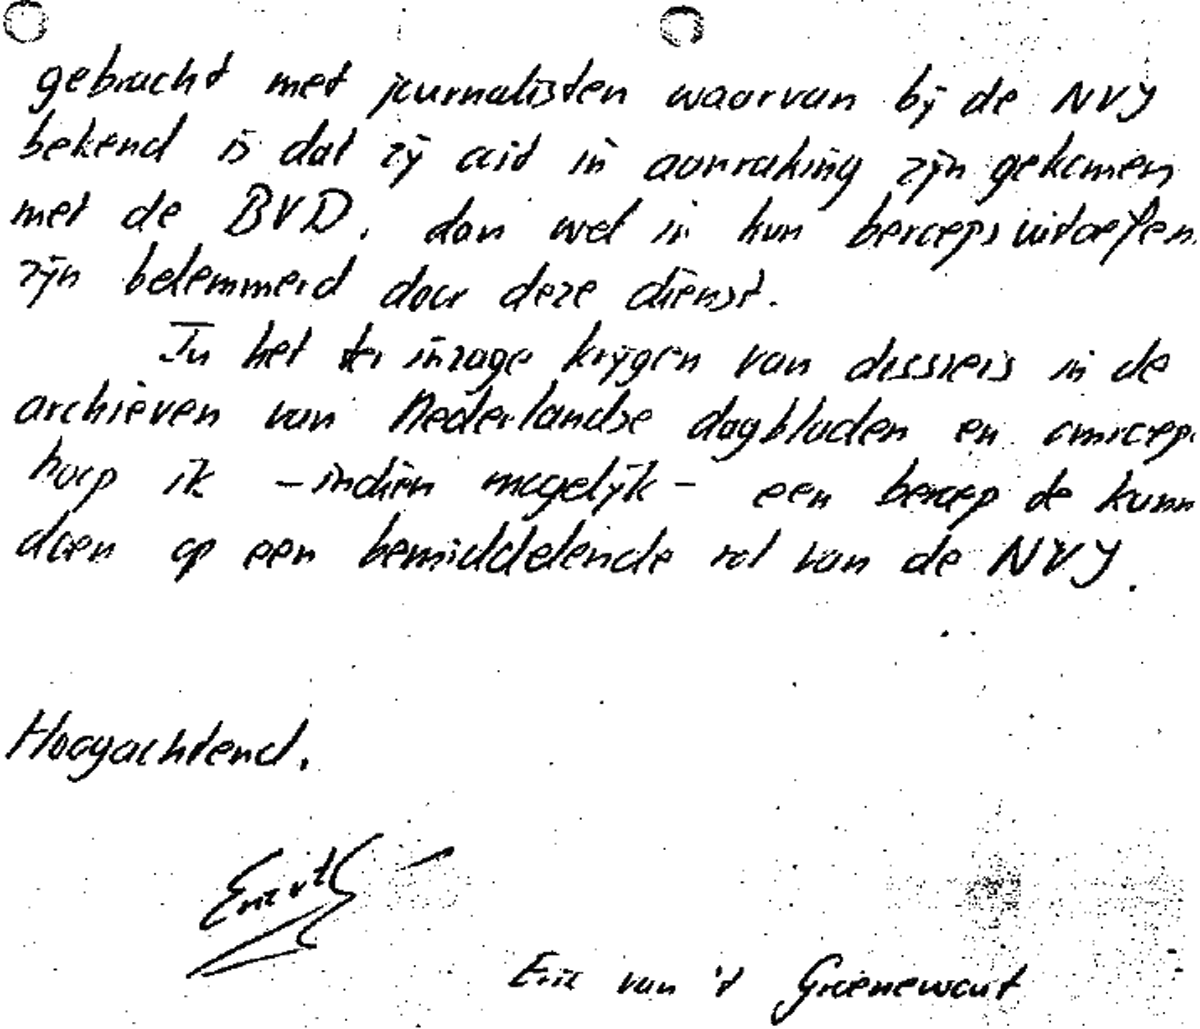 gebracht met journalisten waarvan bij de NVJ
bekend is dat zij ooit in aanraking zijn gekomen
met de BVD, dan wel in hun beroepsuitoefen
zijn belemmerd door deze dienst.
In het ter inzage krijgen van dossiers in de
archieven van Nederlandse dagbladen en omroep
hoop ik - indien mogelijk - een beroep te kunn
doen op een bemiddelende rol van de NVJ.
Hoogachtend,
Eric van 't Groenewout